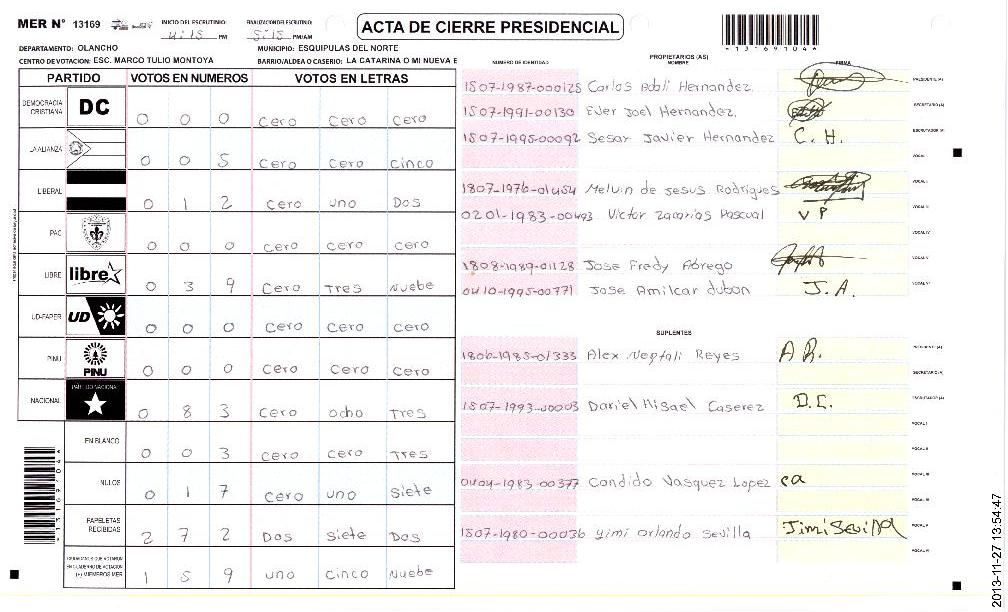 MER N° 13169 INICIO DEL ESCRUTINIO: 4:15 PM FINALIZACION DEL ESCRUTINIO: 5:15 PM/AM
ACTA DE CIERRE PRESIDENCIAL
*13169104*
DEPARTAMENTO: OLANCHO MUNICIPIO: ESQUIPULAS DEL NORTE
CENTRO DE VOTACION: ESC. MARCO TULIO MONTOYA BARRIO/ALDEA O CASERIO: LA CATARINA O MI NUEVA E
PARTIDO VOTOS EN NUMEROS VOTOS EN LETRAS
DEMOCRACIA CRISTIANA DC 0 0 0 Cero Cero Cero
LA ALIANZA 0 0 5 Cero Cero Cinco
LIBERAL 0 1 2 Cero uno Dos
PAC 0 0 0 Cero Cero Cero
LIBRE libre 0 3 9 Cero Tres Nuebe
UD-FAPER UD 0 0 0 Cero Cero Cero
PINU PINU 0 0 0 Cero Cero Cero
NACIONAL PARTIDO NACIONAL 0 8 3 Cero ocho Tres
EN BLANCO 0 0 3 Cero Cero Tres
NULOS 0 1 7 Cero uno Siete
PAPELETAS RECIBIDAS 2 7 2 Dos Siete Dos
CIUDADANOS QUE VOTARON EN CUADERNO DE VOTACION (+) MIEMBROS MER 1 5 9 uno Cinco Nuebe
*13169104*
PROPIETARIOS (AS)
NUMERO DE IDENTIDAD NOMBRE FIRMA
1507-1987-000125 Carlos Adoli Hernandez. PRESIDENTE (A)
1507-1991-00130 Ever Joel Hernandez. SECRETARIO (A)
1507-1995-00092 Sesar Javier Hernandez C. H. ESCRUTADOR (A)
VOCAL I
1807-1976-01454 Melvin de Jesus Rodrigues VOCAL II
0201-1983-00493 Victor Zacarias Pascual V P VOCAL III
VOCAL IV
1808-1989-01128 Jose Fredy Abrego VOCAL V
0410-1995-00771 Jose Amilcar dubon J. A. VOCAL VI
SUPLENTES
1806-1985-01333 Alex Neptali Reyes A R. PRESIDENTE (A)
SECRETARIO (A)
1507-1993-00003 Daniel Misael Caserez D. C. ESCRUTADOR (A)
VOCAL I
VOCAL II
0404-1983-00377 Candido Vasquez Lopez ca VOCAL III
VOCAL IV
1507-1980-00036 yimi orlando Sevilla Jimi Sevilla VOCAL V
VOCAL VI
2013-11-27 13:54:47